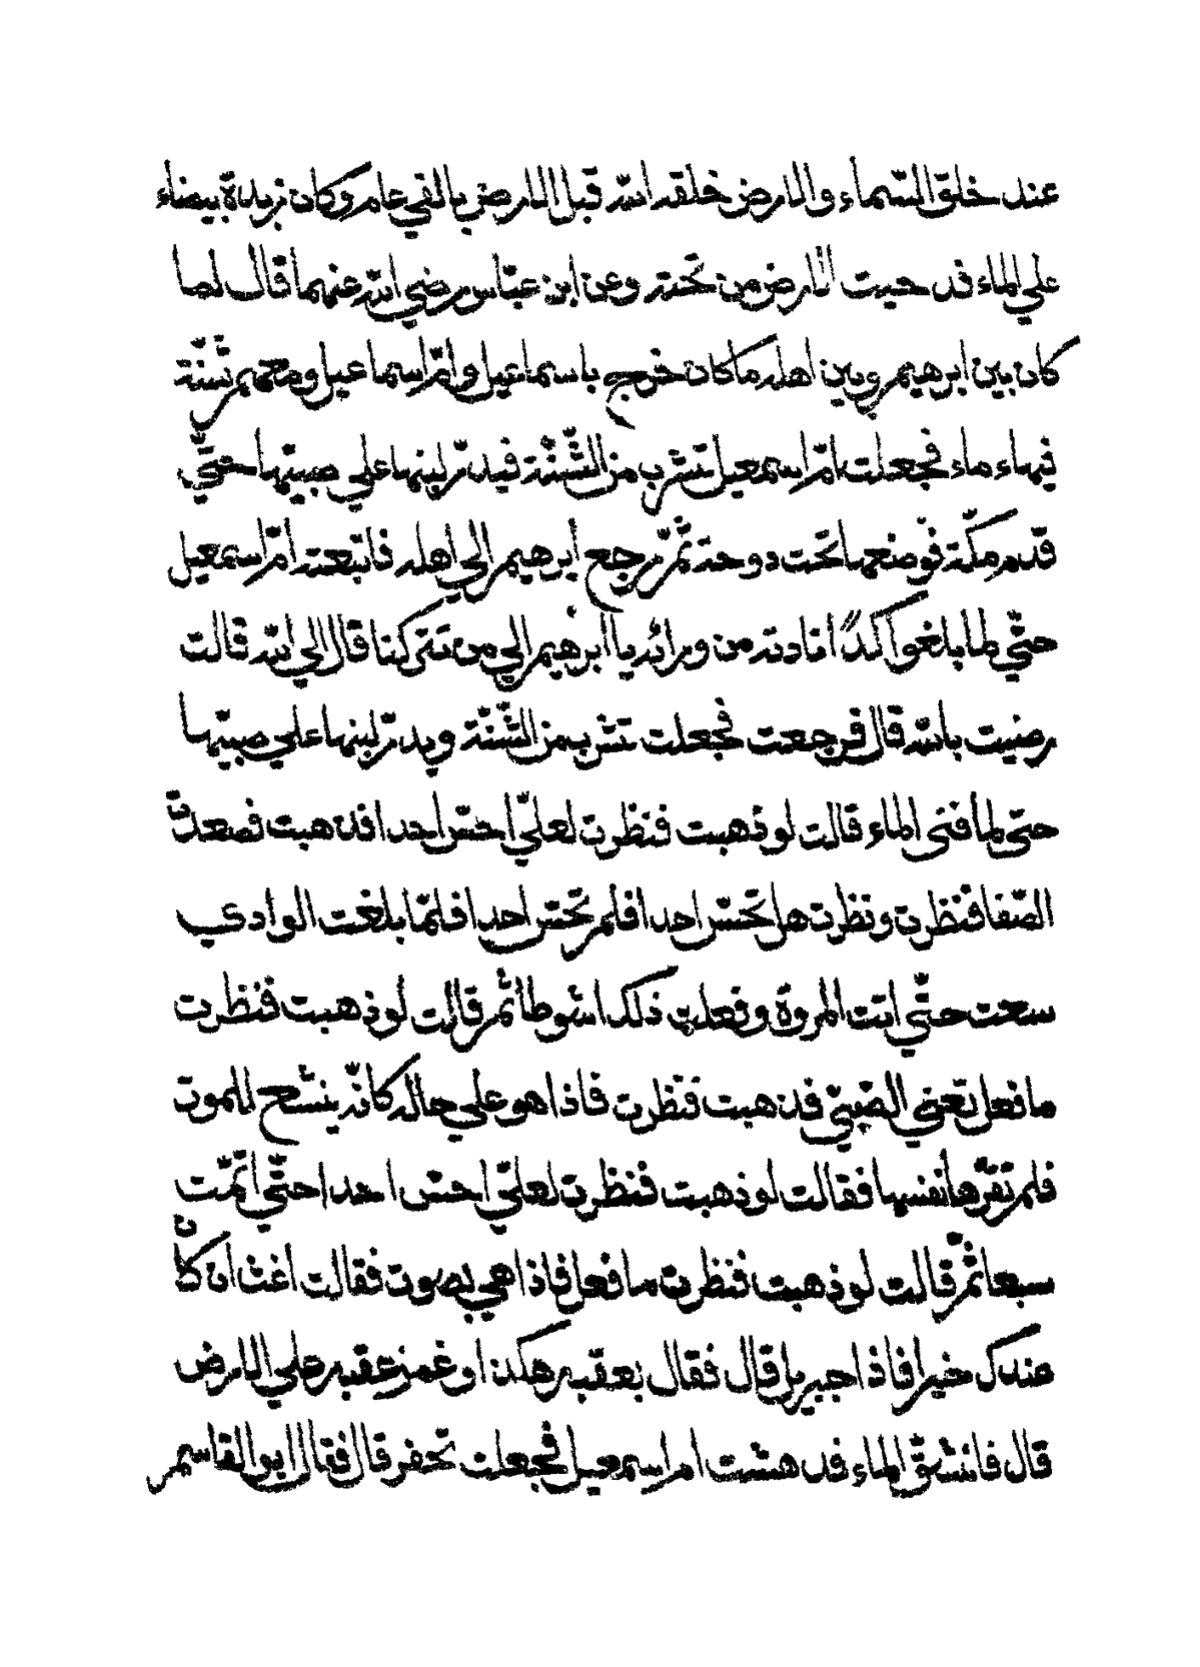 عند خلق السّماء والارض خلقه الله قبل الارض بالفي عام وكان زبدة بيضاء
علي الماء فدحيت الارض من تحته وعن ابن عبّاس رضي الله عنهما قال لما
كان بين ابرهيم وبين اهله ما كان خرج باسماعيل وامّ اسماعيل ومعهم شنّة
فيها ماء فجعلت امّ اسمعيل تشرب من الشّنّة فيدرّ لبنها علي صبيّها حتّي
قدم مكّة فوضعها تحت دوحة ثمّ رجع ابرهيم الي اهله فاتبعته امّ اسمعيل
حتّي لما بلغوا كداً نادته من ورائه يا ابرهيم الي من تتركنا قال الي الله قالت
رضيت بالله قال فرجعت فجعلت تشرب من الشّنّة ويدرّ لبنها علي صبيّها
حتى لما فنى الماء قالت لو ذهبت فنظرت لعلّي احسّ احدا فذهبت فصعدت
الصّفا فنظرت ونظرت هل تحسّ احدا فلم تحسّ احدا فلمّا بلغت الوادي
سعت حتّي اتت المروة وفعلت ذلك اشواطا ثم قالت لو ذهبت فنظرت
ما فعل تعني الصّبيّ فذهبت فنظرت فاذا هو علي حاله كانّه ينشح للموت
فلم تقرّها نفسها فقالت لو ذهبت فنظرت لعلّي احسّ احدا حتّي اتمّت
سبعا ثمّ قالت لو ذهبت فنظرت ما فعل فاذا هي بصوت فقالت اغث ان كان
عندك خيرا فاذا جبريل قال فقال بعقبه هكذا وغمز عقبه علي الارض
قال فانشقّ الماء فدهشت ام اسمعيل فجعلت تحفر قال فقال ابو القاسم